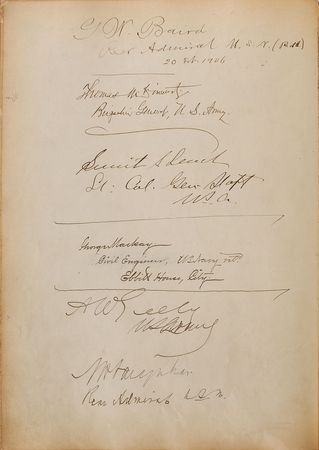 G. W. Baird
Rear Admiral U.S.N. (Ret)
20 1906
Thomas
Brigadier General, U.S. Army.
S Dent
Lt: Col. Gen Staff
U.S.A.
George Mackay
Civil Engineer, US Navy
Ebbitt House, City
A W Greely
US Army
Rear Admiral U.S.N.